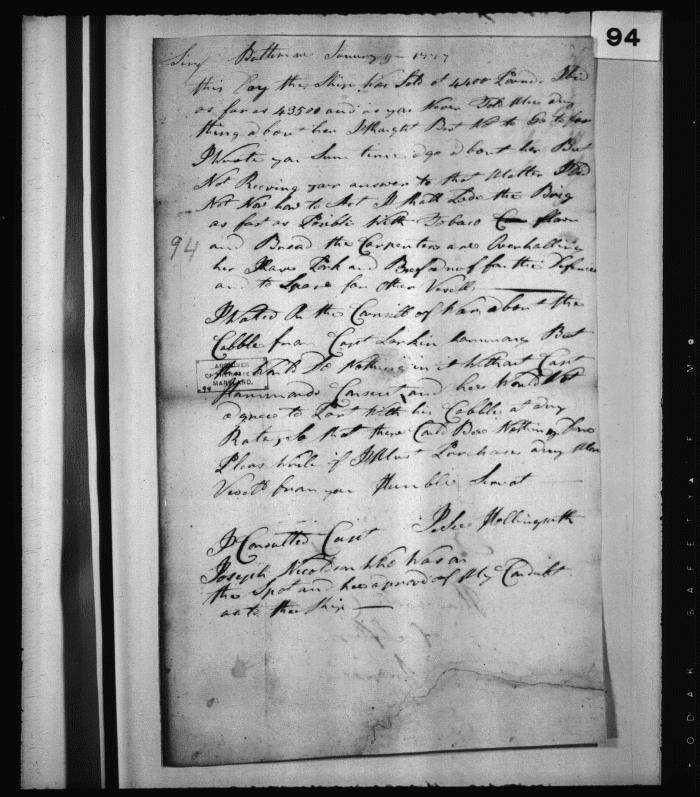 94
Sir Baltimore January 9 - 1777
this Day the Ship was Sold at 4400 Pounds I Bid
as far as 43500 and as you Never Told Mee any
thing about her I thaught Best Not to Go to far
I Wrote you Sum time ago about her But
Not Receving your answer to that Matter I Did
Not Now how to Act I shall Lode the Brig
as far as Posible With Tobaco Flour
and Bread the Carpenters are Overhalling
her I have Pork and Beef anuf for this
and to Spare for Other Vesells
94
I Waited On the Counsill of War about the
Cabble from Capt Larkin Hammond But
Do Nothing in it Without Capt
ARCHIVES
OF
MARYLAND.
94
Hammonds Consent and hee Would Not
agree to Part With his Cabble at any
Rate, So that there Could Bee Nothing Dno
Pleas Write if I Must Purchase any
Vesels from your Humble Servant
Jesse Hollingsworth
I Consulted Capt
Joseph Nicolson Who Was on
the Spot and hee aproved of My Conduct
as to the Ship
KODAK SAFETY